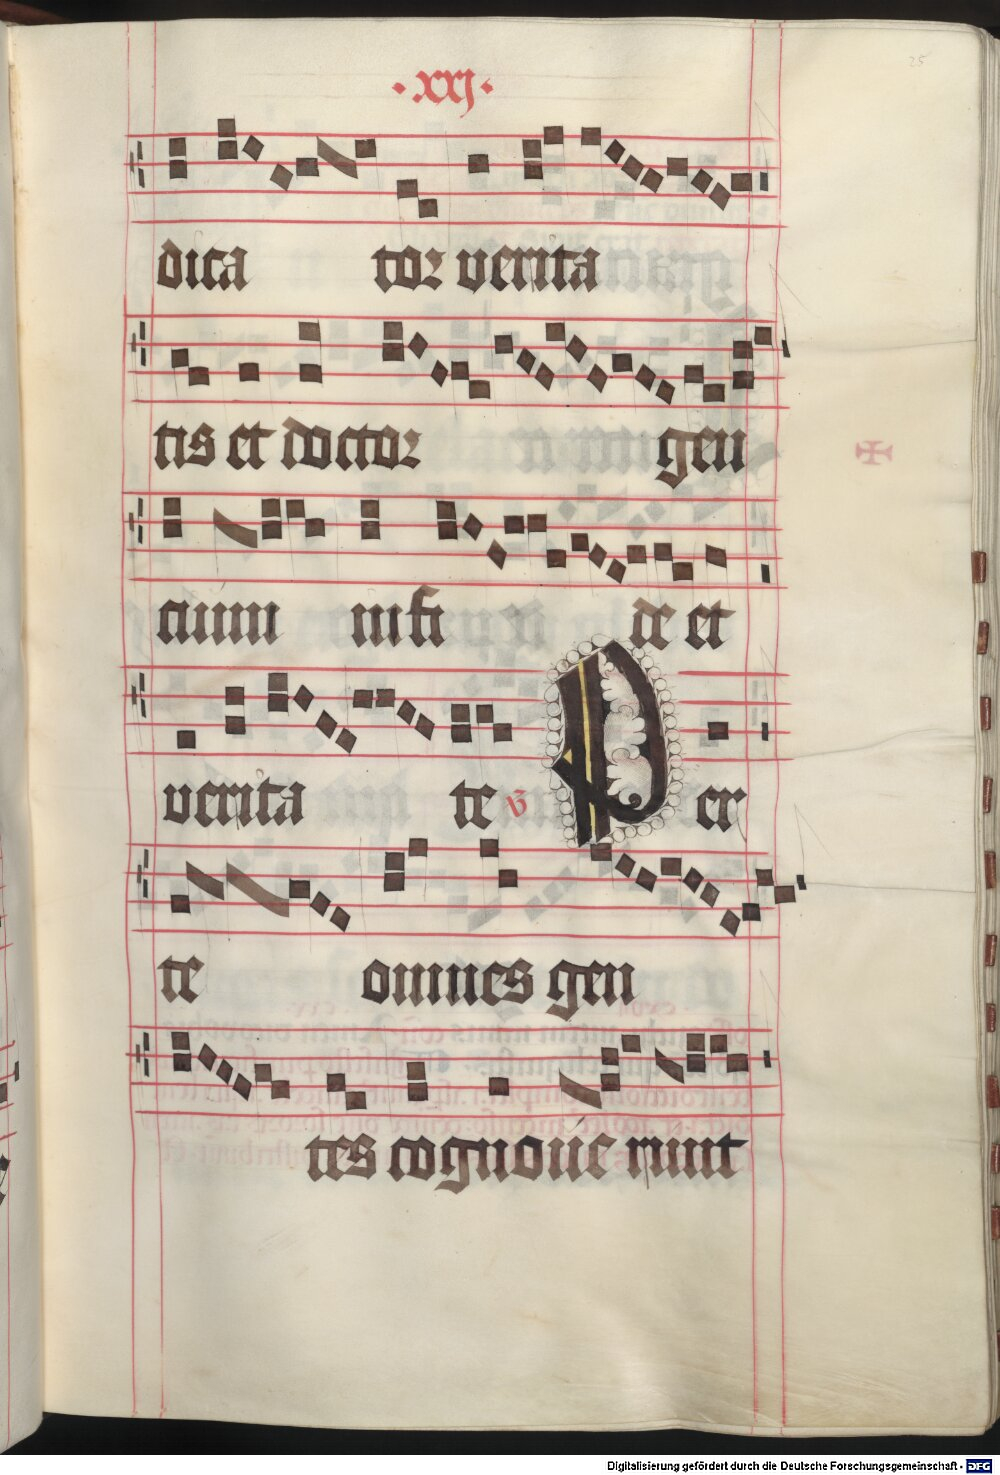 · xxj ·
25
dica tor verita
tis et doctor gen
cium in fi de et
verita te v Per
te omnes gen
tes cognoue runt
Digitalisierung gefördert durch die Deutsche Forschungsgemeinschaft - DFG